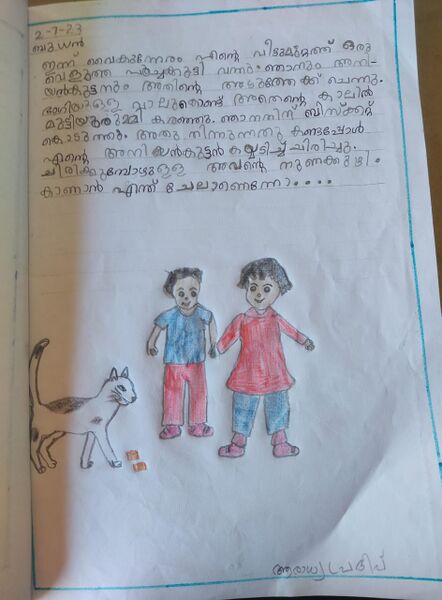 2-7-23
ബുധൻ
ഇന്ന് വൈകുന്നേരം എന്റെ വീട്ടുമുറ്റത്ത് ഒരു
വെളുത്ത പൂച്ചക്കുട്ടി വന്നു. ഞാനും അനി-
യൻകുട്ടനും അതിന്റെ അടുത്തേക്ക് ചെന്നു.
ഭംഗിയുള്ള വാലുകൊണ്ട് അതെന്റെ കാലിൽ
മുട്ടിയുരുമ്മി കരഞ്ഞു. ഞാനതിന് ബിസ്ക്കറ്റ്
കൊടുത്തു. അതു തിന്നുന്നതു കണ്ടപ്പോൾ
എന്റെ അനിയൻകുട്ടൻ കയ്യടിച്ച് ചിരിച്ചു.
ചിരിക്കുമ്പോഴുള്ള അവന്റെ നുണക്കുഴി
കാണാൻ എന്ത് ചേലാണെന്നോ....
ആരാധ്യ പ്രദീപ്